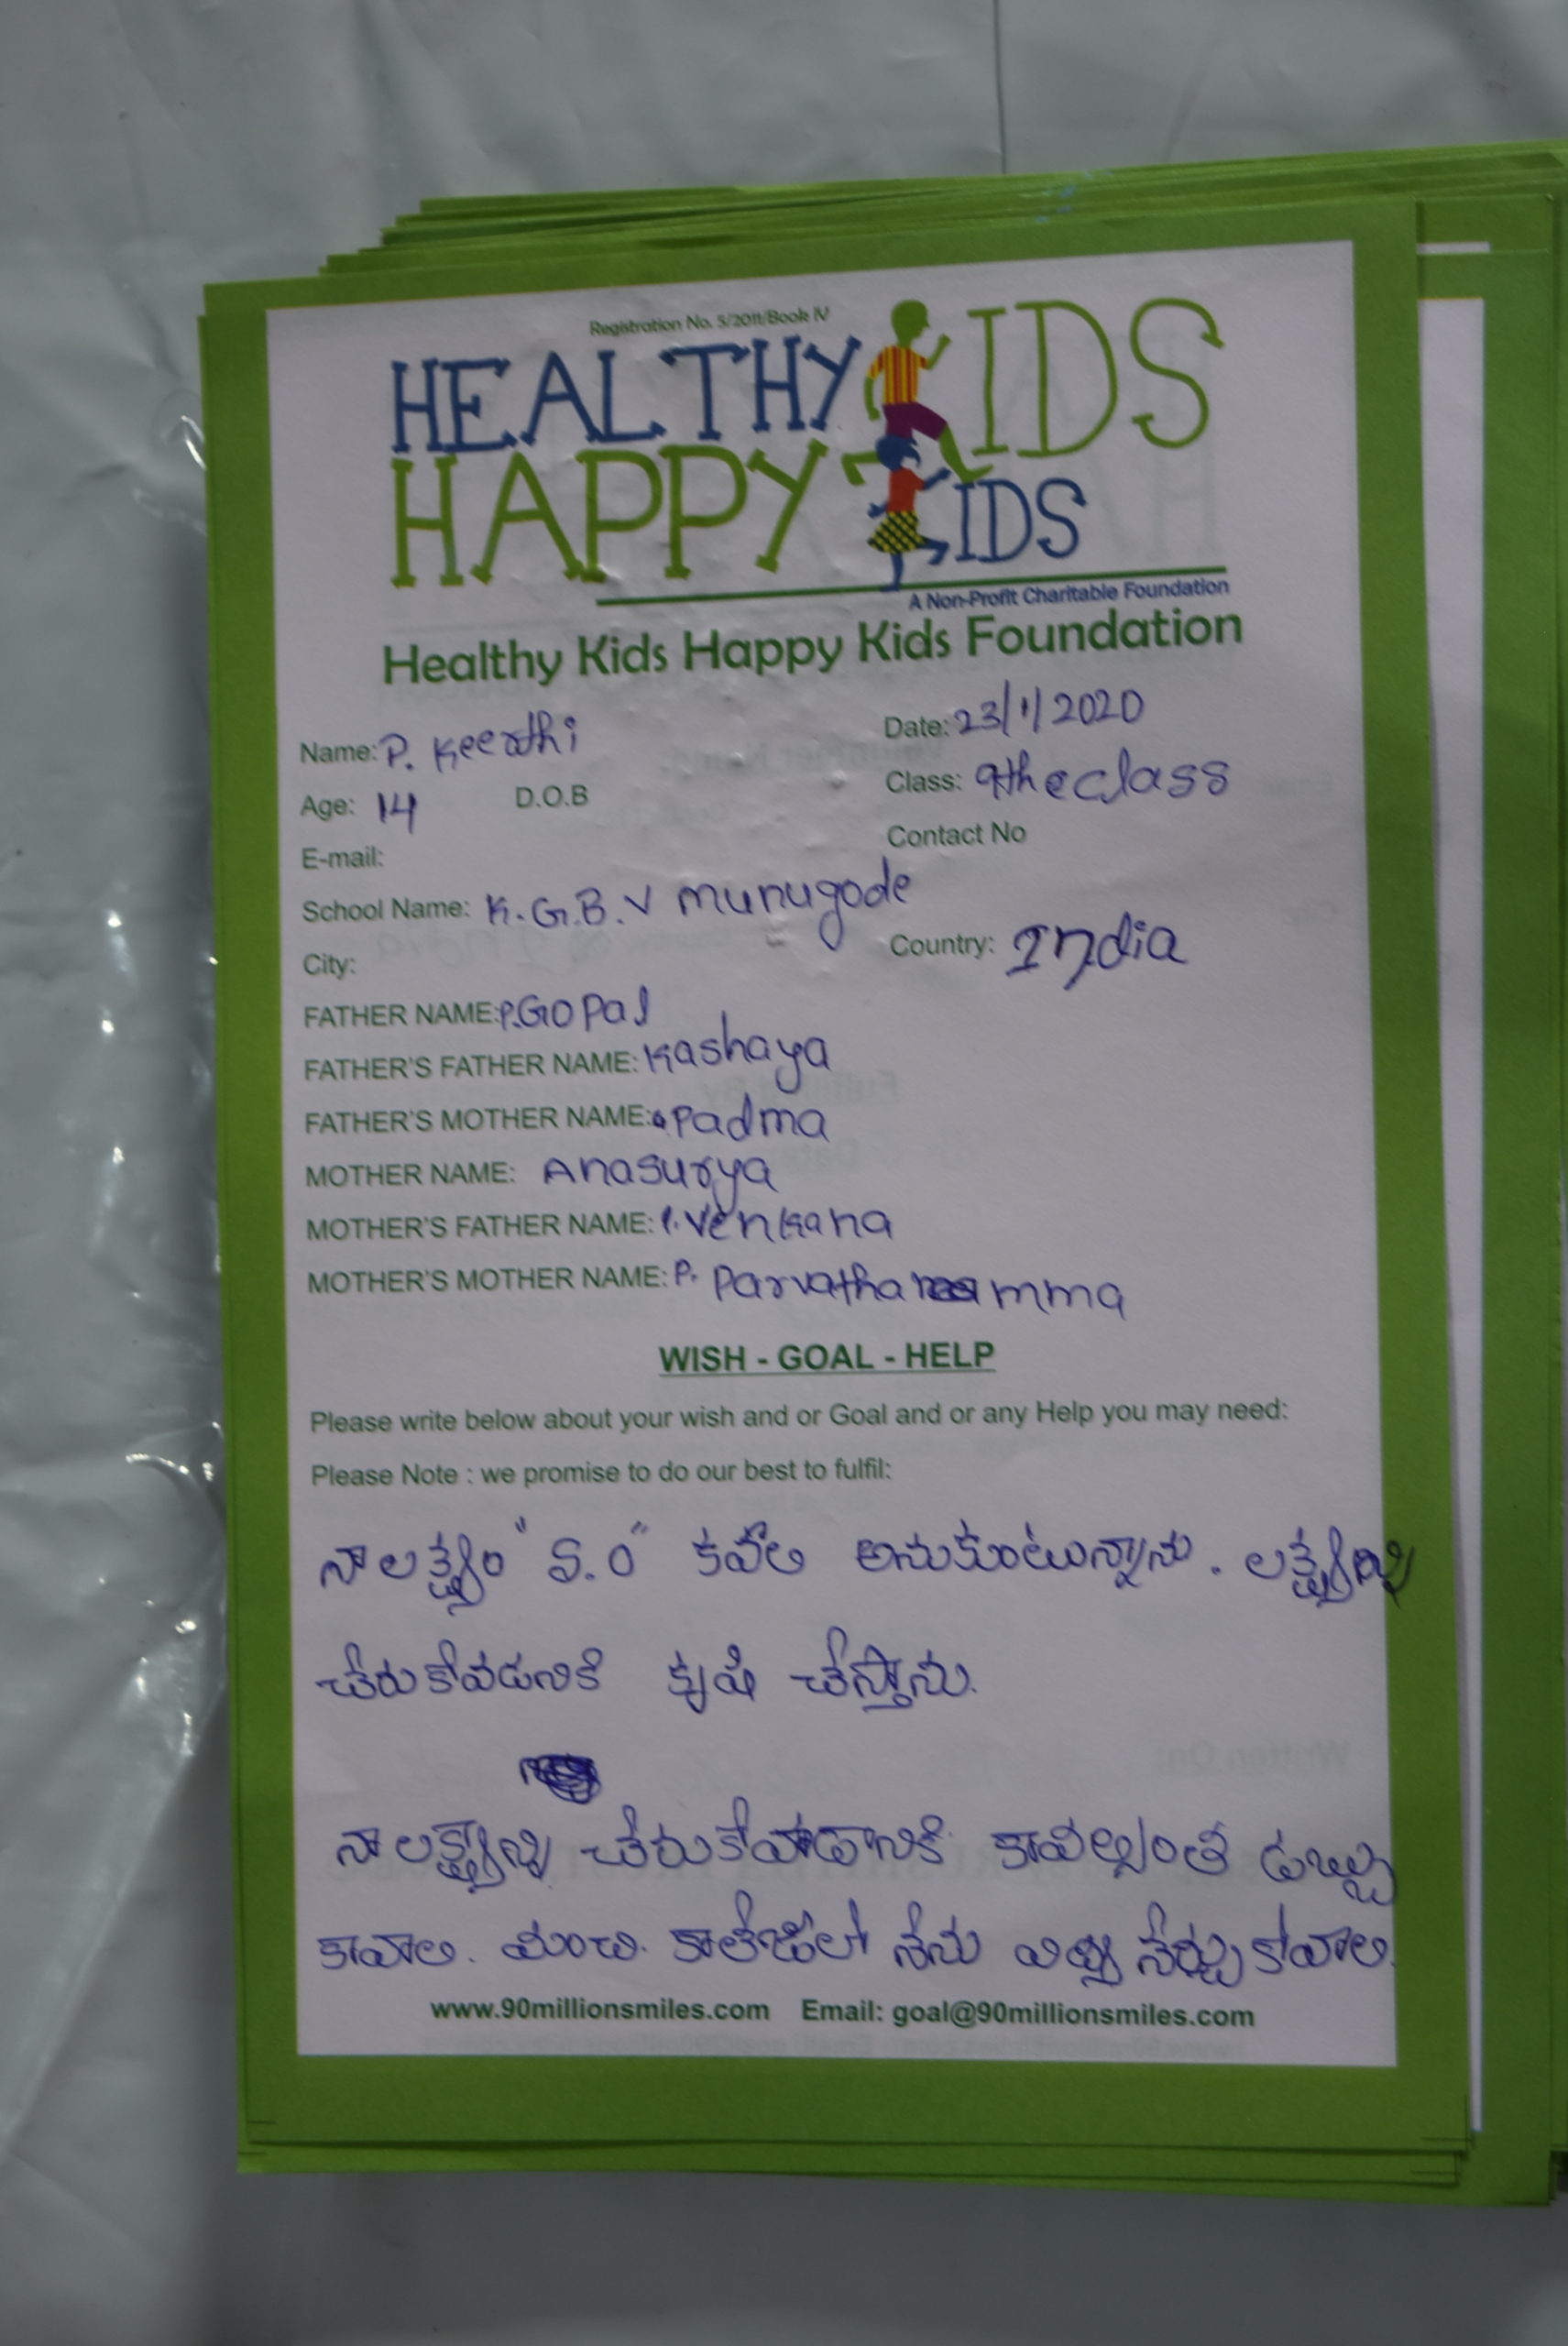 Registration No. 5/2011/Book IV
HEALTHY KIDS
HAPPY KIDS
A Non-Profit Charitable Foundation
Healthy Kids Happy Kids Foundation
Name: P. Keerthi Date: 23/1/2020
Age: 14 D.O.B Class: 9the class
E-mail: Contact No
School Name: K.G.B.V munugode
City: Country: India
FATHER NAME: P.GOPal
FATHER'S FATHER NAME: Kashaya
FATHER'S MOTHER NAME: Padma
MOTHER NAME: Anasurya
MOTHER'S FATHER NAME: P. Venkana
MOTHER'S MOTHER NAME: P. Parvatha mma
WISH - GOAL - HELP
Please write below about your wish and or Goal and or any Help you may need:
Please Note : we promise to do our best to fulfil:
నా లక్ష్యం కవాలి అనుకుంటున్నాను. లక్ష్యాన్ని
చేరుకోవడనికి కృషి చేస్తాను.
నా లక్ష్యాన్ని చేరుకోవాడానికి కావల్సింత డబ్బు
కావాలి. మంచి కాలేజిలో నేను విద్య నేర్చుకోవాలి.
www.90millionsmiles.com Email: goal@90millionsmiles.com